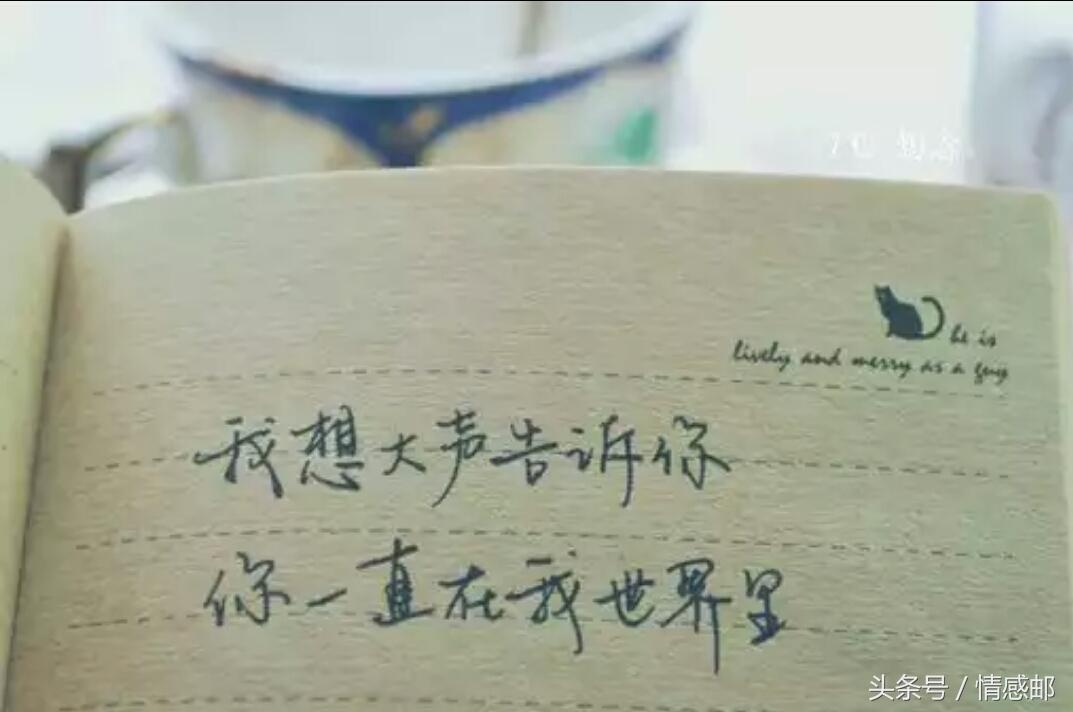 he is
lively and merry as a guy
我想大声告诉你
你一直在我世界里
头条号 / 情感邮